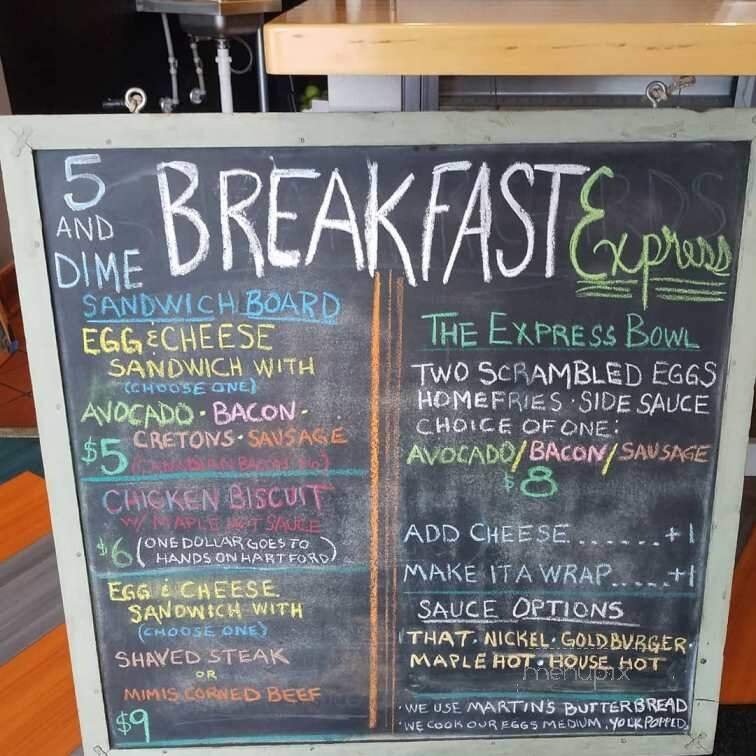 5
AND
DIME
BREAKFAST Express
SANDWICH BOARD
EGG & CHEESE
SANDWICH WITH
(CHOOSE ONE)
AVOCADO · BACON ·
$5 CRETONS · SAUSAGE
(CANADIAN BACON
CHICKEN BISCUIT
W/ MAPLE HOT SAUCE
$6 (ONE DOLLAR GOES TO
HANDS ON HARTFORD)
EGG & CHEESE
SANDWICH WITH
(CHOOSE ONE)
SHAVED STEAK
OR
MIMIS CORNED BEEF
$9
THE EXPRESS BOWL
TWO SCRAMBLED EGGS
HOMEFRIES · SIDE SAUCE
CHOICE OF ONE:
AVOCADO/BACON/SAUSAGE
$8
ADD CHEESE.......+1
MAKE IT A WRAP.....+1
SAUCE OPTIONS
THAT · NICKEL · GOLDBURGER ·
MAPLE HOT · HOUSE HOT
menupix
· WE USE MARTIN'S BUTTERBREAD
· WE COOK OUR EGGS MEDIUM, YOLK POPPED,